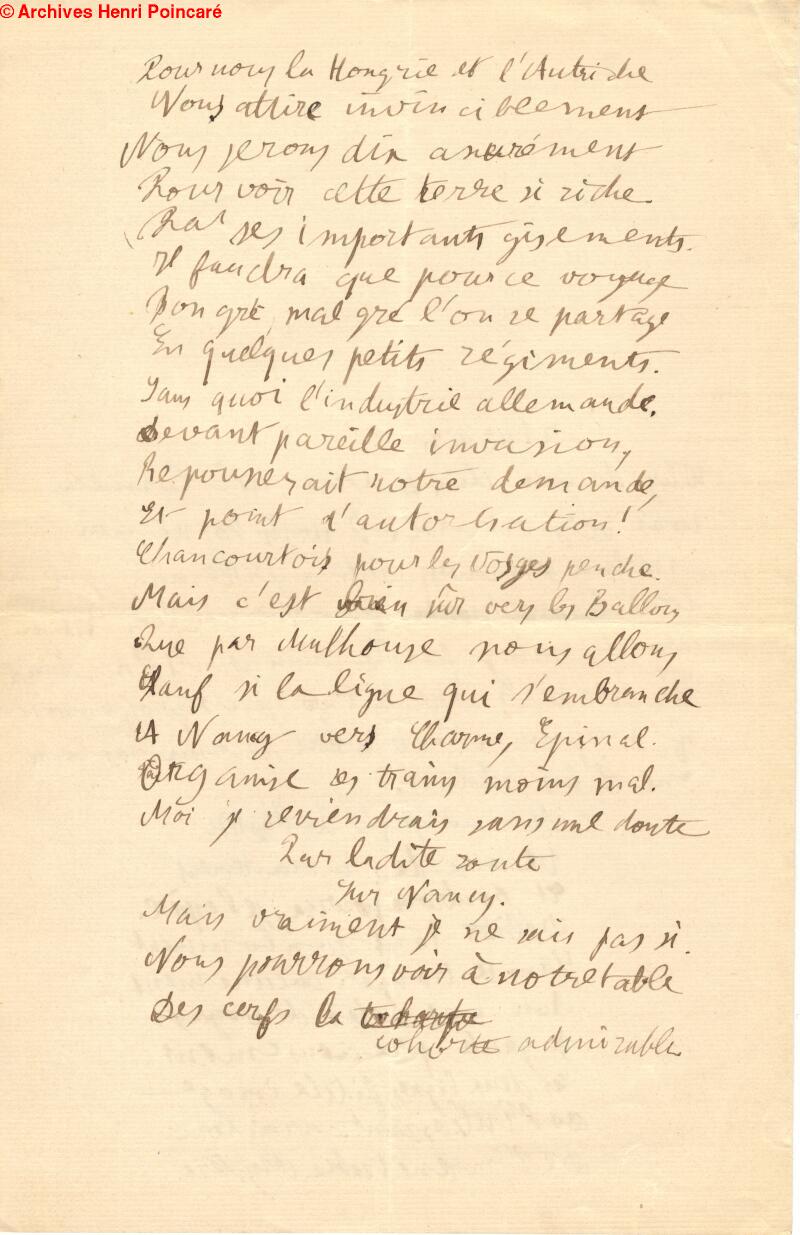 © Archives Henri Poincaré
Pour nous la Hongrie et l'Autriche
Nous attire invinciblement
Nous serons dix assurément
Pour voir cette terre si riche.
Par ses importants gisements.
Il faudra que pour ce voyage
Bon gré, malgré l'on se partage
En quelques petits régiments.
Sans quoi l'industrie allemande.
Devant pareille invasion,
Repousserait notre demande,
Et point d'autorisation!
Chancourtois pour les Vosges penche.
Mais c'est bien sûr vers les Ballons
Que par Mulhouse nous allons
Sauf si la ligne qui s'embranche
A Nancy vers Charme, Epinal.
Organise ses trains moins mal.
Moi je reviendrais sans nul doute
Par ladite route
Sur Nancy.
Mais vraiment je ne sais pas si.
Nous pourrons voir à notre table
Des cerfs la
cohorte admirable